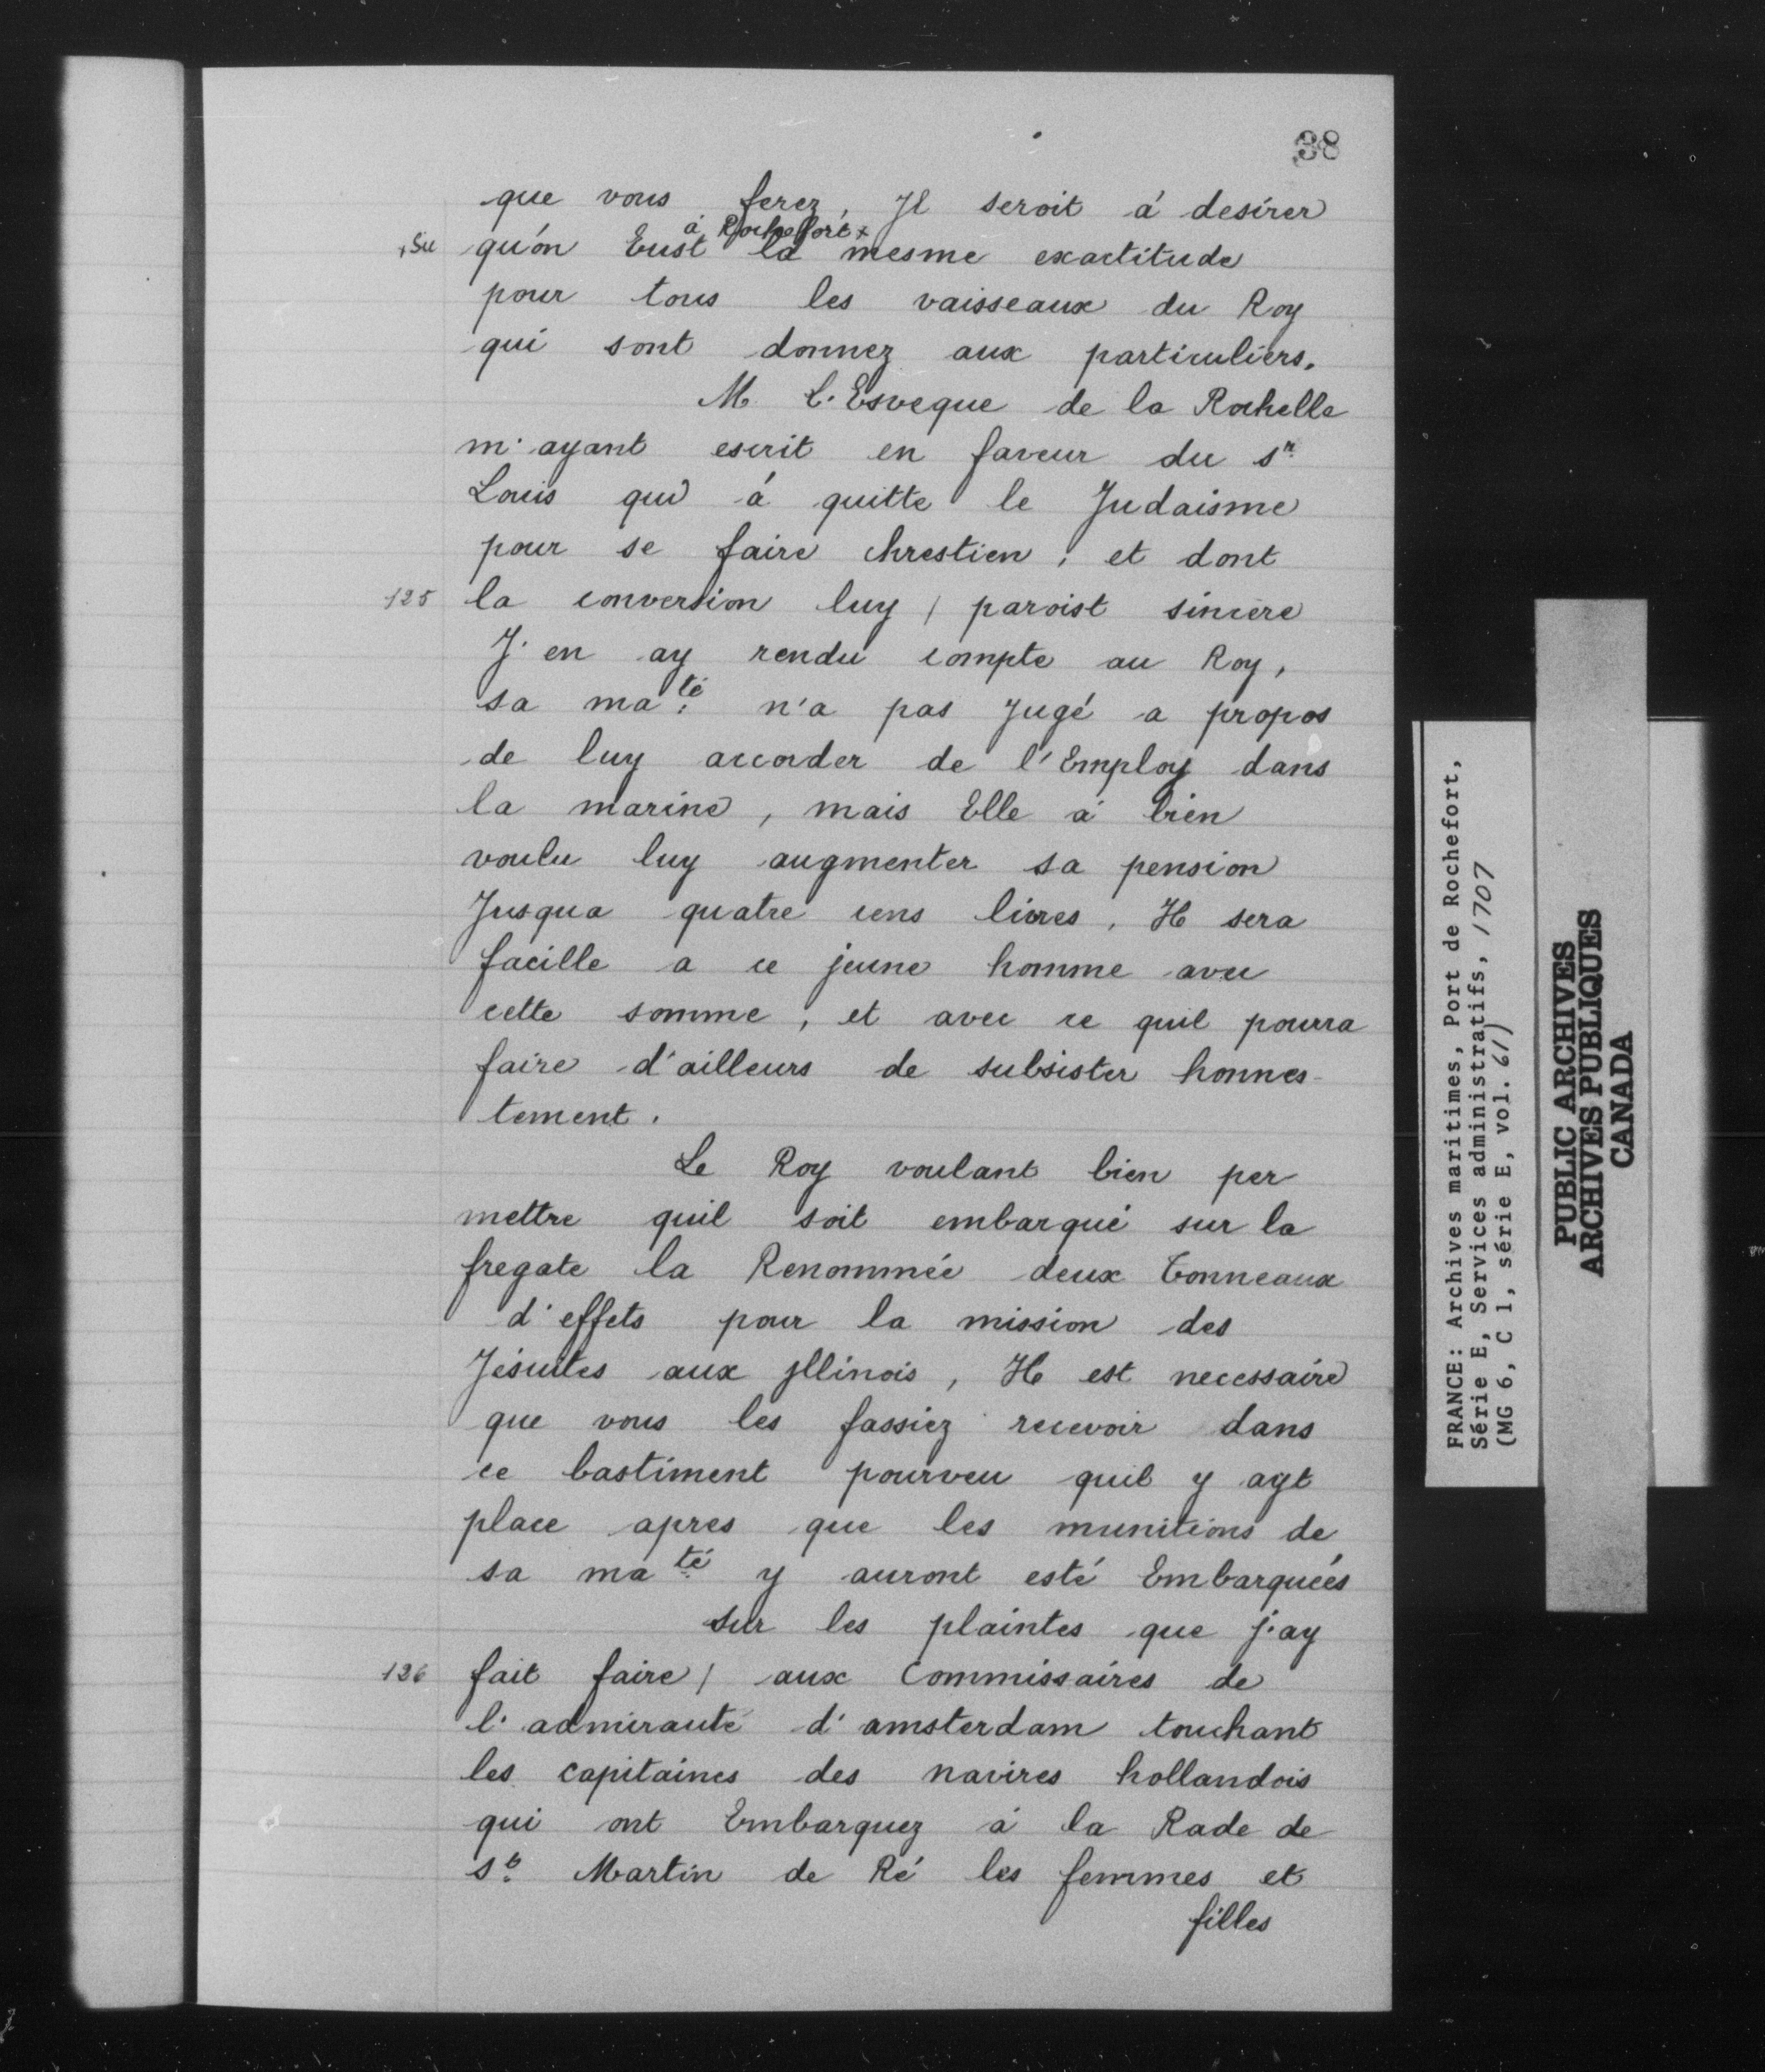 38
que vous ferez, Jl seroit à desirer
à Rochefort x
x Su qu'on Eust la mesme exactitude
pour tous les vaisseaux du Roy
qui sont donnez aux particuliers.
M. l'Esveque de la Rochelle
m'ayant escrit en faveur du sr
Louis qui à quitte le Judaisme
pour se faire chrestien, et dont
125 la conversion luy / paroist sincere
J'en ay rendu compte au Roy,
sa ma.té n'a pas jugé a propos
de luy accorder de l'Employ dans
la marine, mais Elle à bien
voulu luy augmenter sa pension
Jusqua quatre cens livres. Il sera
facille a ce jeune homme avec
cette somme, et avec ce quil pourra
faire d'ailleurs de subsister honnes-
tement.
Le Roy voulant bien per
mettre quil soit embarqué sur la
fregate la Renommée deux Tonneaux
d'effets pour la mission des
Jésuites aux jllinois, Il est necessaire
que vous les fassiez recevoir dans
ce bastiment pourveu quil y ayt
place apres que les munitions de
sa ma.té y auront esté Embarquées
sur les plaintes que j'ay
126 fait faire / aux Commissaires de
l'admirauté d'amsterdam touchant
les capitaines des navires hollandois
qui ont Embarquez à la Rade de
st. Martin de Ré les femmes et
filles
FRANCE: Archives maritimes, Port de Rochefort,
Série E, Services administratifs, 1707
(MG 6, C 1, série E, vol. 61)
PUBLIC ARCHIVES
ARCHIVES PUBLIQUES
CANADA